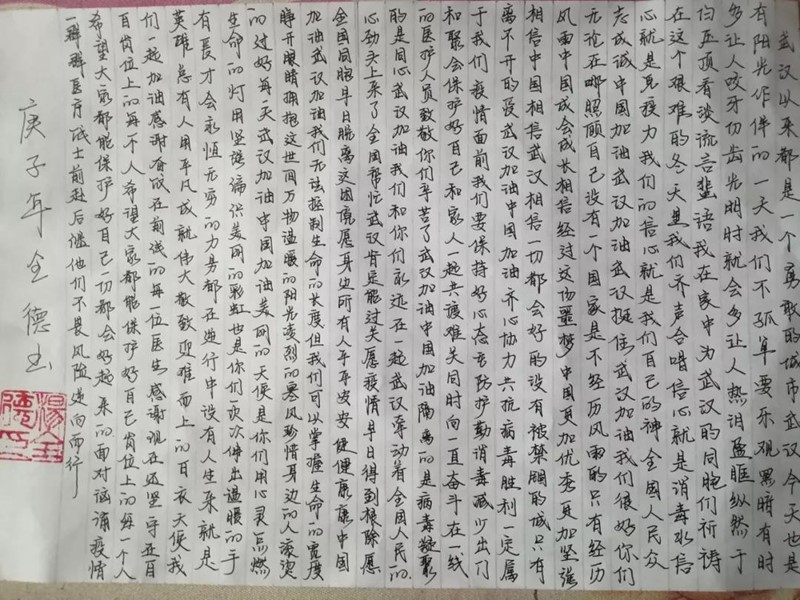 武汉以来都是一个勇敢的城市武汉今天也是
有阳光作伴的一天我们不孤单要乐观黑暗有时
多让人咬牙切齿光明时就会多让人热泪盈眶纵然千
在这个艰难的冬天里我们齐声合唱信心就是消毒水信
心就是免疫力我们的信心就是我们自己的神全国人民众
志成城中国加油武汉加油武汉挺住武汉加油我们很好你们
无论在哪照顾自己没有一个国家是不经历风雨的只有经历
风雨中国成会成长相信经过这场噩梦中国更加优秀更加坚强
相信中国相信武汉相信一切都会好的没有被禁锢的城只有
离不开的爱武汉加油中国加油齐心协力共抗病毒胜利一定属
于我们疫情面前我们要保持好心态去防护勤消毒减少出门
和聚会保护好自己和家人一起共渡难关同时向一直奋斗在一线
的医护人员致敬你们辛苦了武汉加油中国加油隔离的是病毒凝聚
的是同心武汉加油我们和你们永远在一起武汉牵动着全国人民的
心劲头上来了全国帮忙武汉肯定能过关愿疫情早日得到根除愿
全国同胞早日脱离这困境愿身边所有人平平安安健健康康中国
加油武汉加油我们无法控制生命的长度但我们可以掌握生命的宽度
睁开眼睛拥抱这世间万物温暖的阳光凌烈的寒风珍惜身边的人滚烫
的过好每一天武汉加油中国加油美丽的天使是你们用心灵点燃
生命的灯用坚强编织美丽的彩虹也是你们一次次伸出温暖的手
有爱才会永恒无穷的力易都在逆行中没有人生来就是
英雄总有人用平凡成就伟大致敬迎难而上的白衣天使我
们一起加油感谢奋战在前线的每一位医生感谢现在还坚守在自
百岗位上的每一个人希望大家都能保护好自己岗位上的每一个人
希望大家都能保护好自己一切都会好起来的面对汹涌疫情
一群群医疗战士前赴后继他们不畏风险逆向而行
庚子年全德书